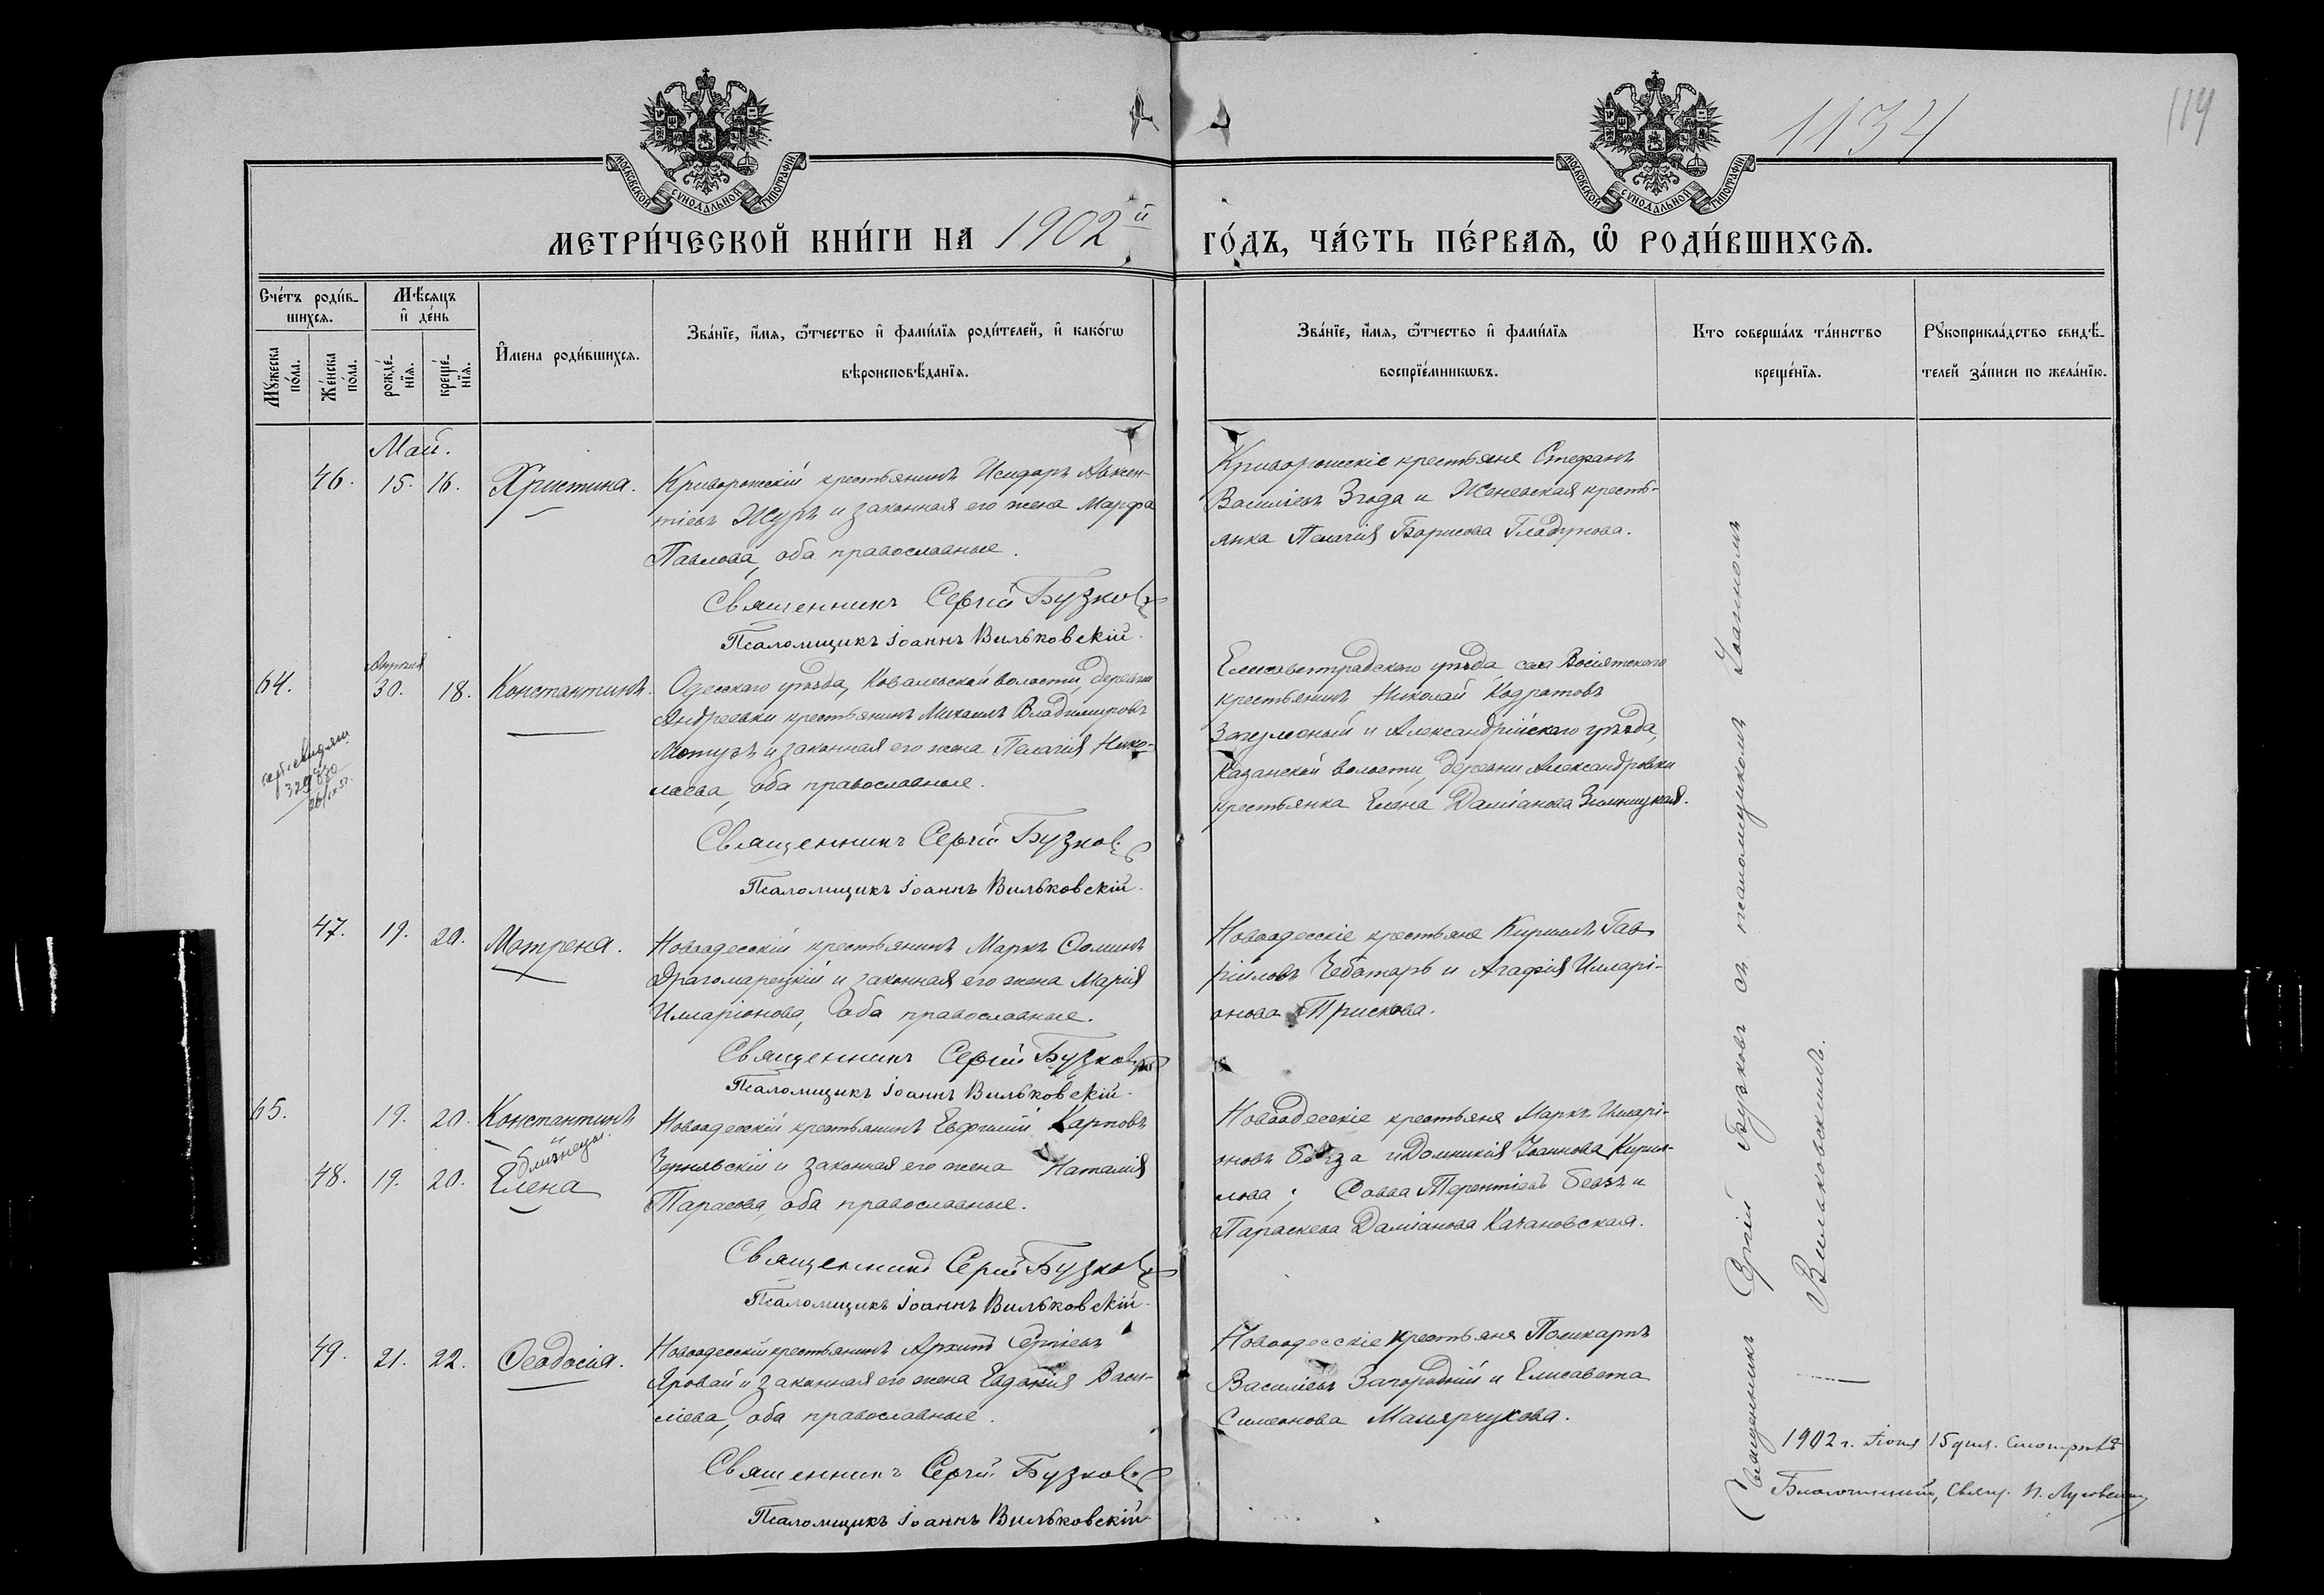 1134
119
МОСКОВСКОЙ СУНОДАЛЬНОЙ ТИПОГРАФІИ
МОСКОВСКОЙ СУНОДАЛЬНОЙ ТИПОГРАФІИ
МЕТРИ́ЧЕСКОЙ КНИ́ГИ НА 1902й
ГО́ДЪ, ЧА́СТЬ ПЕ́РВАѦ, Ѿ РОДИ́ВШИХСѦ.
Сче́тъ роди́в-
шихсѧ.
Мꙋ́жеска по́ла.
Же́нска по́ла.
Мѣ́сѧцъ и҆ де́нь
рожде́-
нїѧ.
креще́-
нїѧ.
И҆мена роди́вшихсѧ.
Зва́нїе, и҆́мѧ, ѻ҆́тчество и҆ фами́лїѧ роди́телей, и҆ како́гѡ
вѣроисповѣ́данїѧ.
Зва́нїе, и҆́мѧ, ѻ҆́тчество и҆ фами́лїѧ
воспрїе́мникѡвъ.
Кто соверша́лъ та́инство
креще́нїѧ.
Рꙋкоприкла́дство свидѣ́-
телей за́писи по жела́нїю.
Май.
46. 15. 16. Христина.
Криворожскій крестьянинъ Исидоръ Авксен-
тіевъ Журъ и законная его жена Марфа
Павлова, оба православные.
Священникъ Сергій Бузковъ
Псаломщикъ Іоаннъ Вильковскій.
Криворожскіе крестьяне Стефанъ
Василіевъ Згода и Женевская кресть-
янка Пелагія Борисова Гладунова.
64. Апрѣля 30. 18. Константинъ.
Одесскаго уѣзда, Ковалевской волости, деревни
Андреевки крестьянинъ Михаилъ Владимировъ
Мотузъ и законная его жена Пелагія Нико-
лаева, оба православные.
Священникъ Сергій Бузковъ
Псаломщикъ Іоаннъ Вильковскій.
Елисаветградскаго уѣзда, села Возсіятскаго
крестьянинъ Николай Кодратовъ
и Александрійскаго уѣзда,
Казанской волости, деревни Александровки
крестьянка Елена Даміанова
47. 19. 20. Матрена.
Новоодесскій крестьянинъ Маркъ Ѳоминъ
Драгомарецкій и законная его жена Марія
Илларіонова, оба православные.
Священникъ Сергій Бузковъ
Псаломщикъ Іоаннъ Вильковскій.
Новоодесскіе крестьяне Кириллъ Гав-
ріиловъ Чеботарь и Агафія Илларі-
онова Трискова.
65. 19. 20. Константинъ
близнецы.
48. 19. 20. Елена
Новоодесскій крестьянинъ Евфимій Карповъ
Чернявскій и законная его жена Наталія
Тарасова, оба православные.
Священникъ Сергій Бузковъ
Псаломщикъ Іоаннъ Вильковскій.
Новоодесскіе крестьяне Маркъ Илларі-
оновъ и Домникія Іоаннова Кирил-
лова; Савва Терентіевъ и
Параскева Даміанова Качановская.
49. 21. 22. Ѳеодосія.
Новоодесскій крестьянинъ Архипъ Сергіевъ
Яровай и законная его жена Евдокія Васи-
ліева, оба православные.
Священникъ Сергій Бузковъ
Псаломщикъ Іоаннъ Вильковскій
Новоодесскіе крестьяне Поликарпъ
Василіевъ Загородній и Елисавета
Симеонова Малярчукова.
Священникъ Сергій Бузковъ съ псаломщикомъ Іоанномъ
Вильковскимъ.
1902 г. Іюня 15 дня. Смотрѣлъ
Благочинный, Свящ. П.